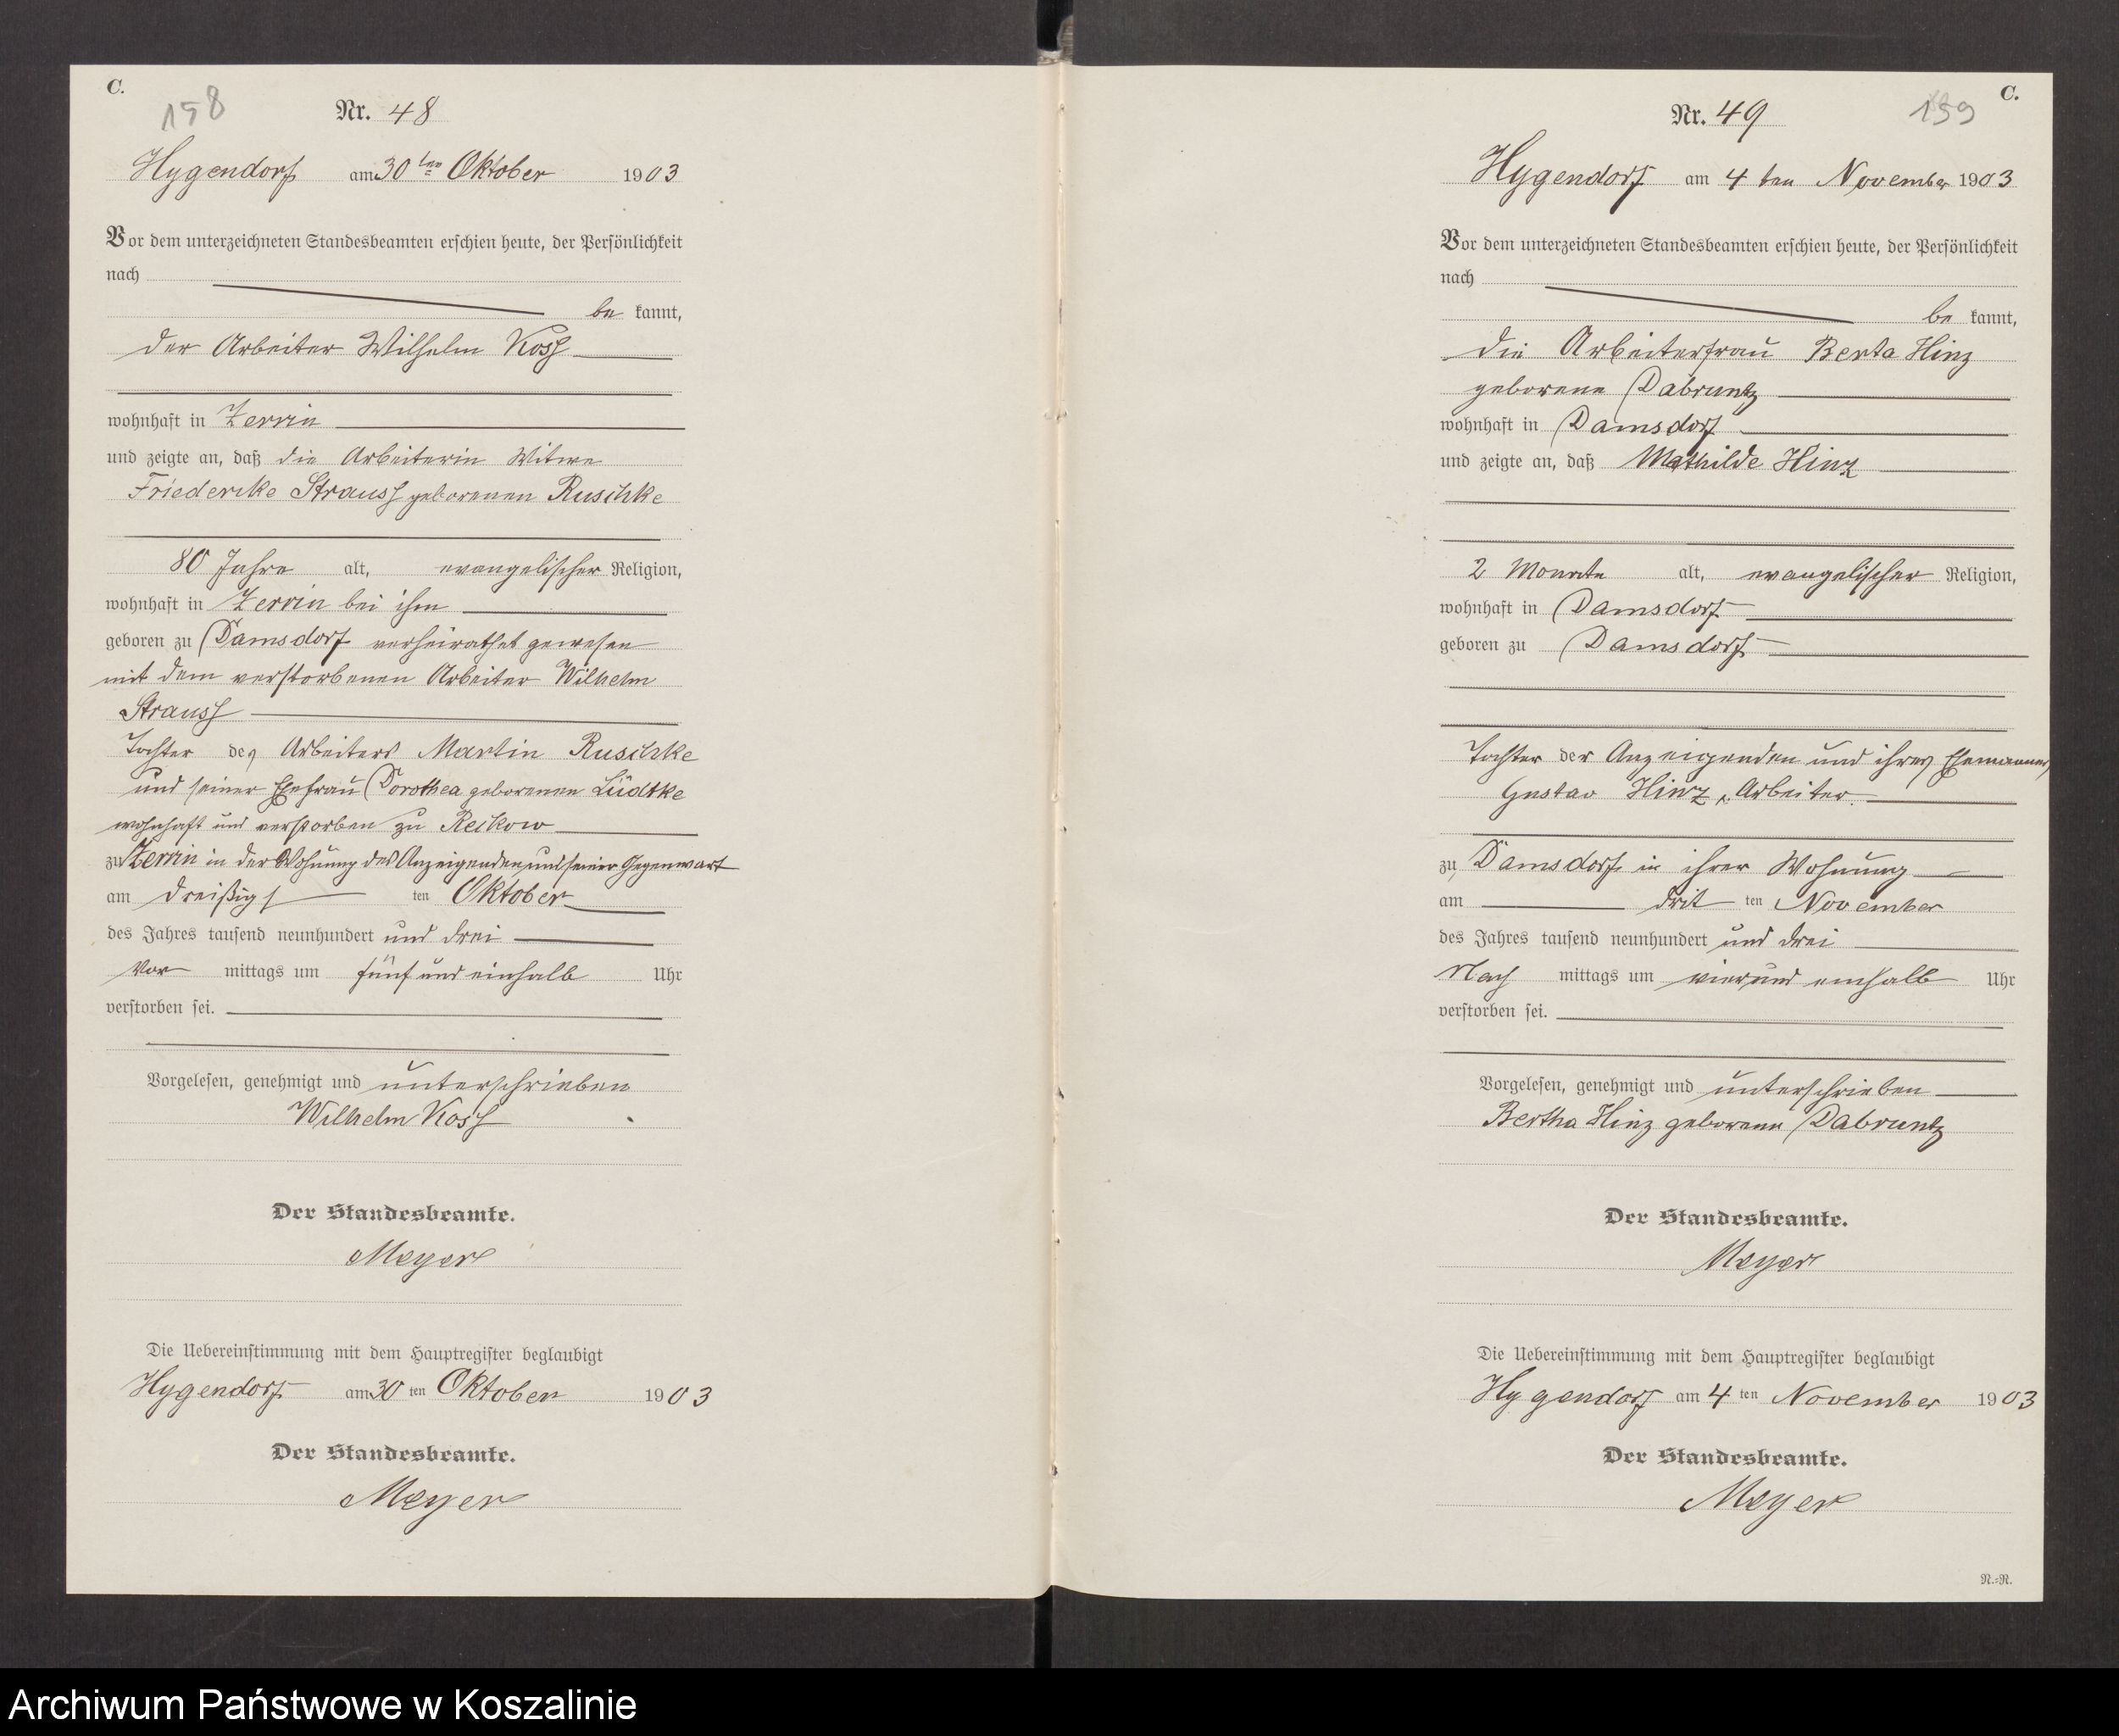 C.
158
Nr. 48
Hygendorf am 30 ten Oktober 1903
Vor dem unterzeichneten Standesbeamten erschien heute, der Persönlichkeit
nach
be kannt,
der Arbeiter Wilhelm Koss
wohnhaft in Zerrin
und zeigte an, daß die Arbeiterin Witwe
Friedericke Strauss geborenen Ruschke
80 Jahre alt, evangelischer Religion,
wohnhaft in Zerrin bei ihm
geboren zu Damsdorf verheirathet gewesen
mit dem verstorbenen Arbeiter Wilhelm
Strauss
Tochter des Arbeiters Martin Ruschke
und seiner Ehefrau Dorothea geborenen Lüdtke
wohnhaft und verstorben zu Reckow
zu Zerrin in der Wohnung des Anzeigenden und seiner Gegenwart
am dreißigs ten Oktober
des Jahres tausend neunhundert und drei
Vor mittags um fünf und einhalb Uhr
verstorben sei.
Vorgelesen, genehmigt und unterschrieben
Wilhelm Koss
Der Standesbeamte.
Meyer
Die Uebereinstimmung mit dem Hauptregister beglaubigt
Hygendorf am 30 ten Oktober 1903
Der Standesbeamte.
Meyer
C.
159
Nr. 49
Hygendorf am 4 ten November 1903
Vor dem unterzeichneten Standesbeamten erschien heute, der Persönlichkeit
nach
be kannt,
die Arbeiterfrau Berta Hinz
geborene Dabruntz
wohnhaft in Damsdorf
und zeigte an, daß Mathilde Hinz
2 Monate alt, evangelischer Religion,
wohnhaft in Damsdorf
geboren zu Damsdorf
Tochter der Anzeigenden und ihres Ehemannes
Gustav Hinz, Arbeiter
zu Damsdorf in ihrer Wohnung
am drit ten November
des Jahres tausend neunhundert und drei
Nach mittags um vier und einhalb Uhr
verstorben sei.
Vorgelesen, genehmigt und unterschrieben
Bertha Hinz geborene Dabruntz
Der Standesbeamte.
Meyer
Die Uebereinstimmung mit dem Hauptregister beglaubigt
Hygendorf am 4 ten November 1903
Der Standesbeamte.
Meyer
N.=R.
Archiwum Państwowe w Koszalinie